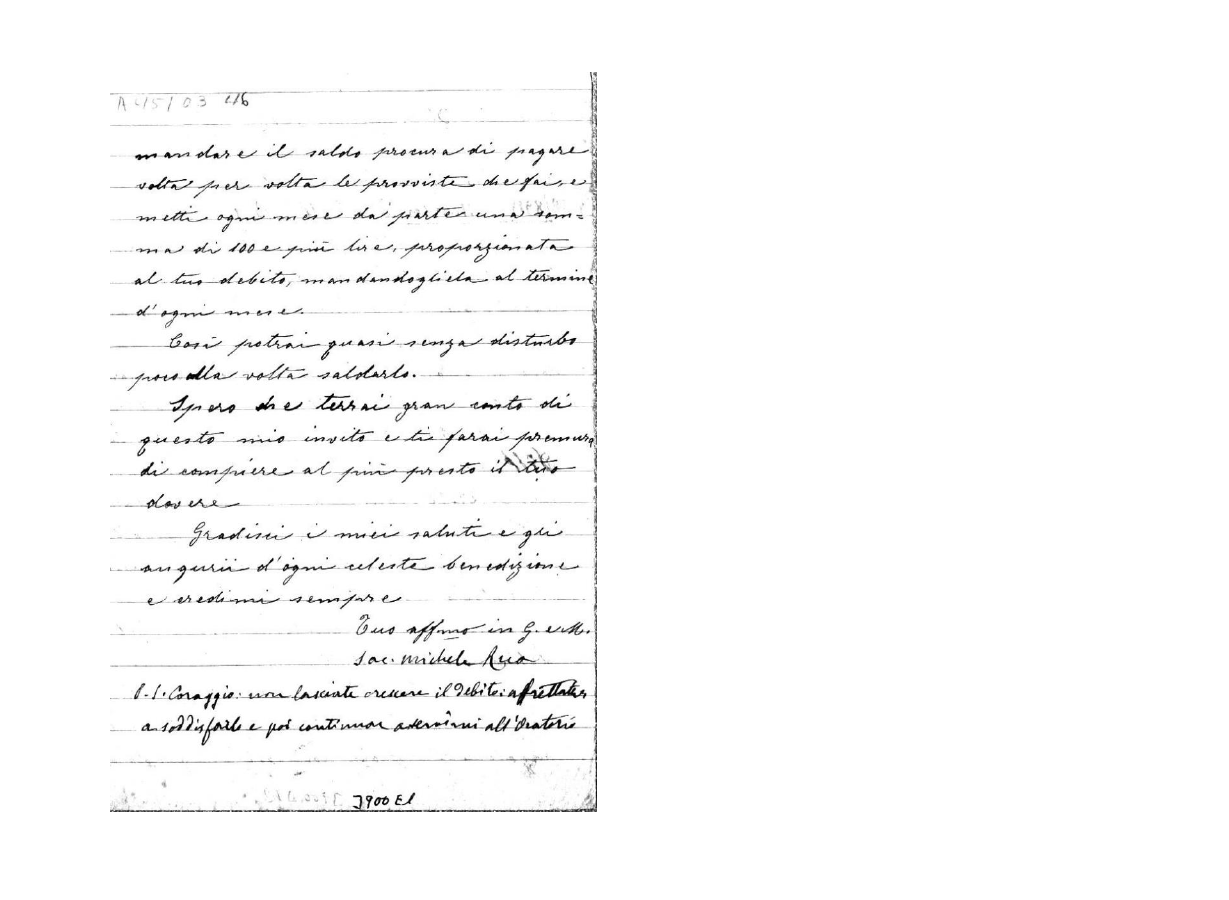 A 45103 46
mandare il saldo procura di pagare
volta per volta le provviste che fai, e
metti ogni mese da parte una som=
ma di 100 e più lire, proporzionata
al tuo debito, mandandogliela al termine
d'ogni mese.
Così potrai quasi senza disturbo
poco alla volta saldarlo.
Spero che terrai gran conto di
questo mio invito e ti farai premura
di compiere al più presto il tuo
dovere
Gradisci i miei saluti e gli
augurii d'ogni celeste benedizione
e credimi sempre
Tuo affmo in G. e M.
Sac. Michele Rua
P.S. Coraggio: non lasciate crescere il debito: affrettatevi
a soddisfarlo e poi continuar all'Oratorio
3900 E1